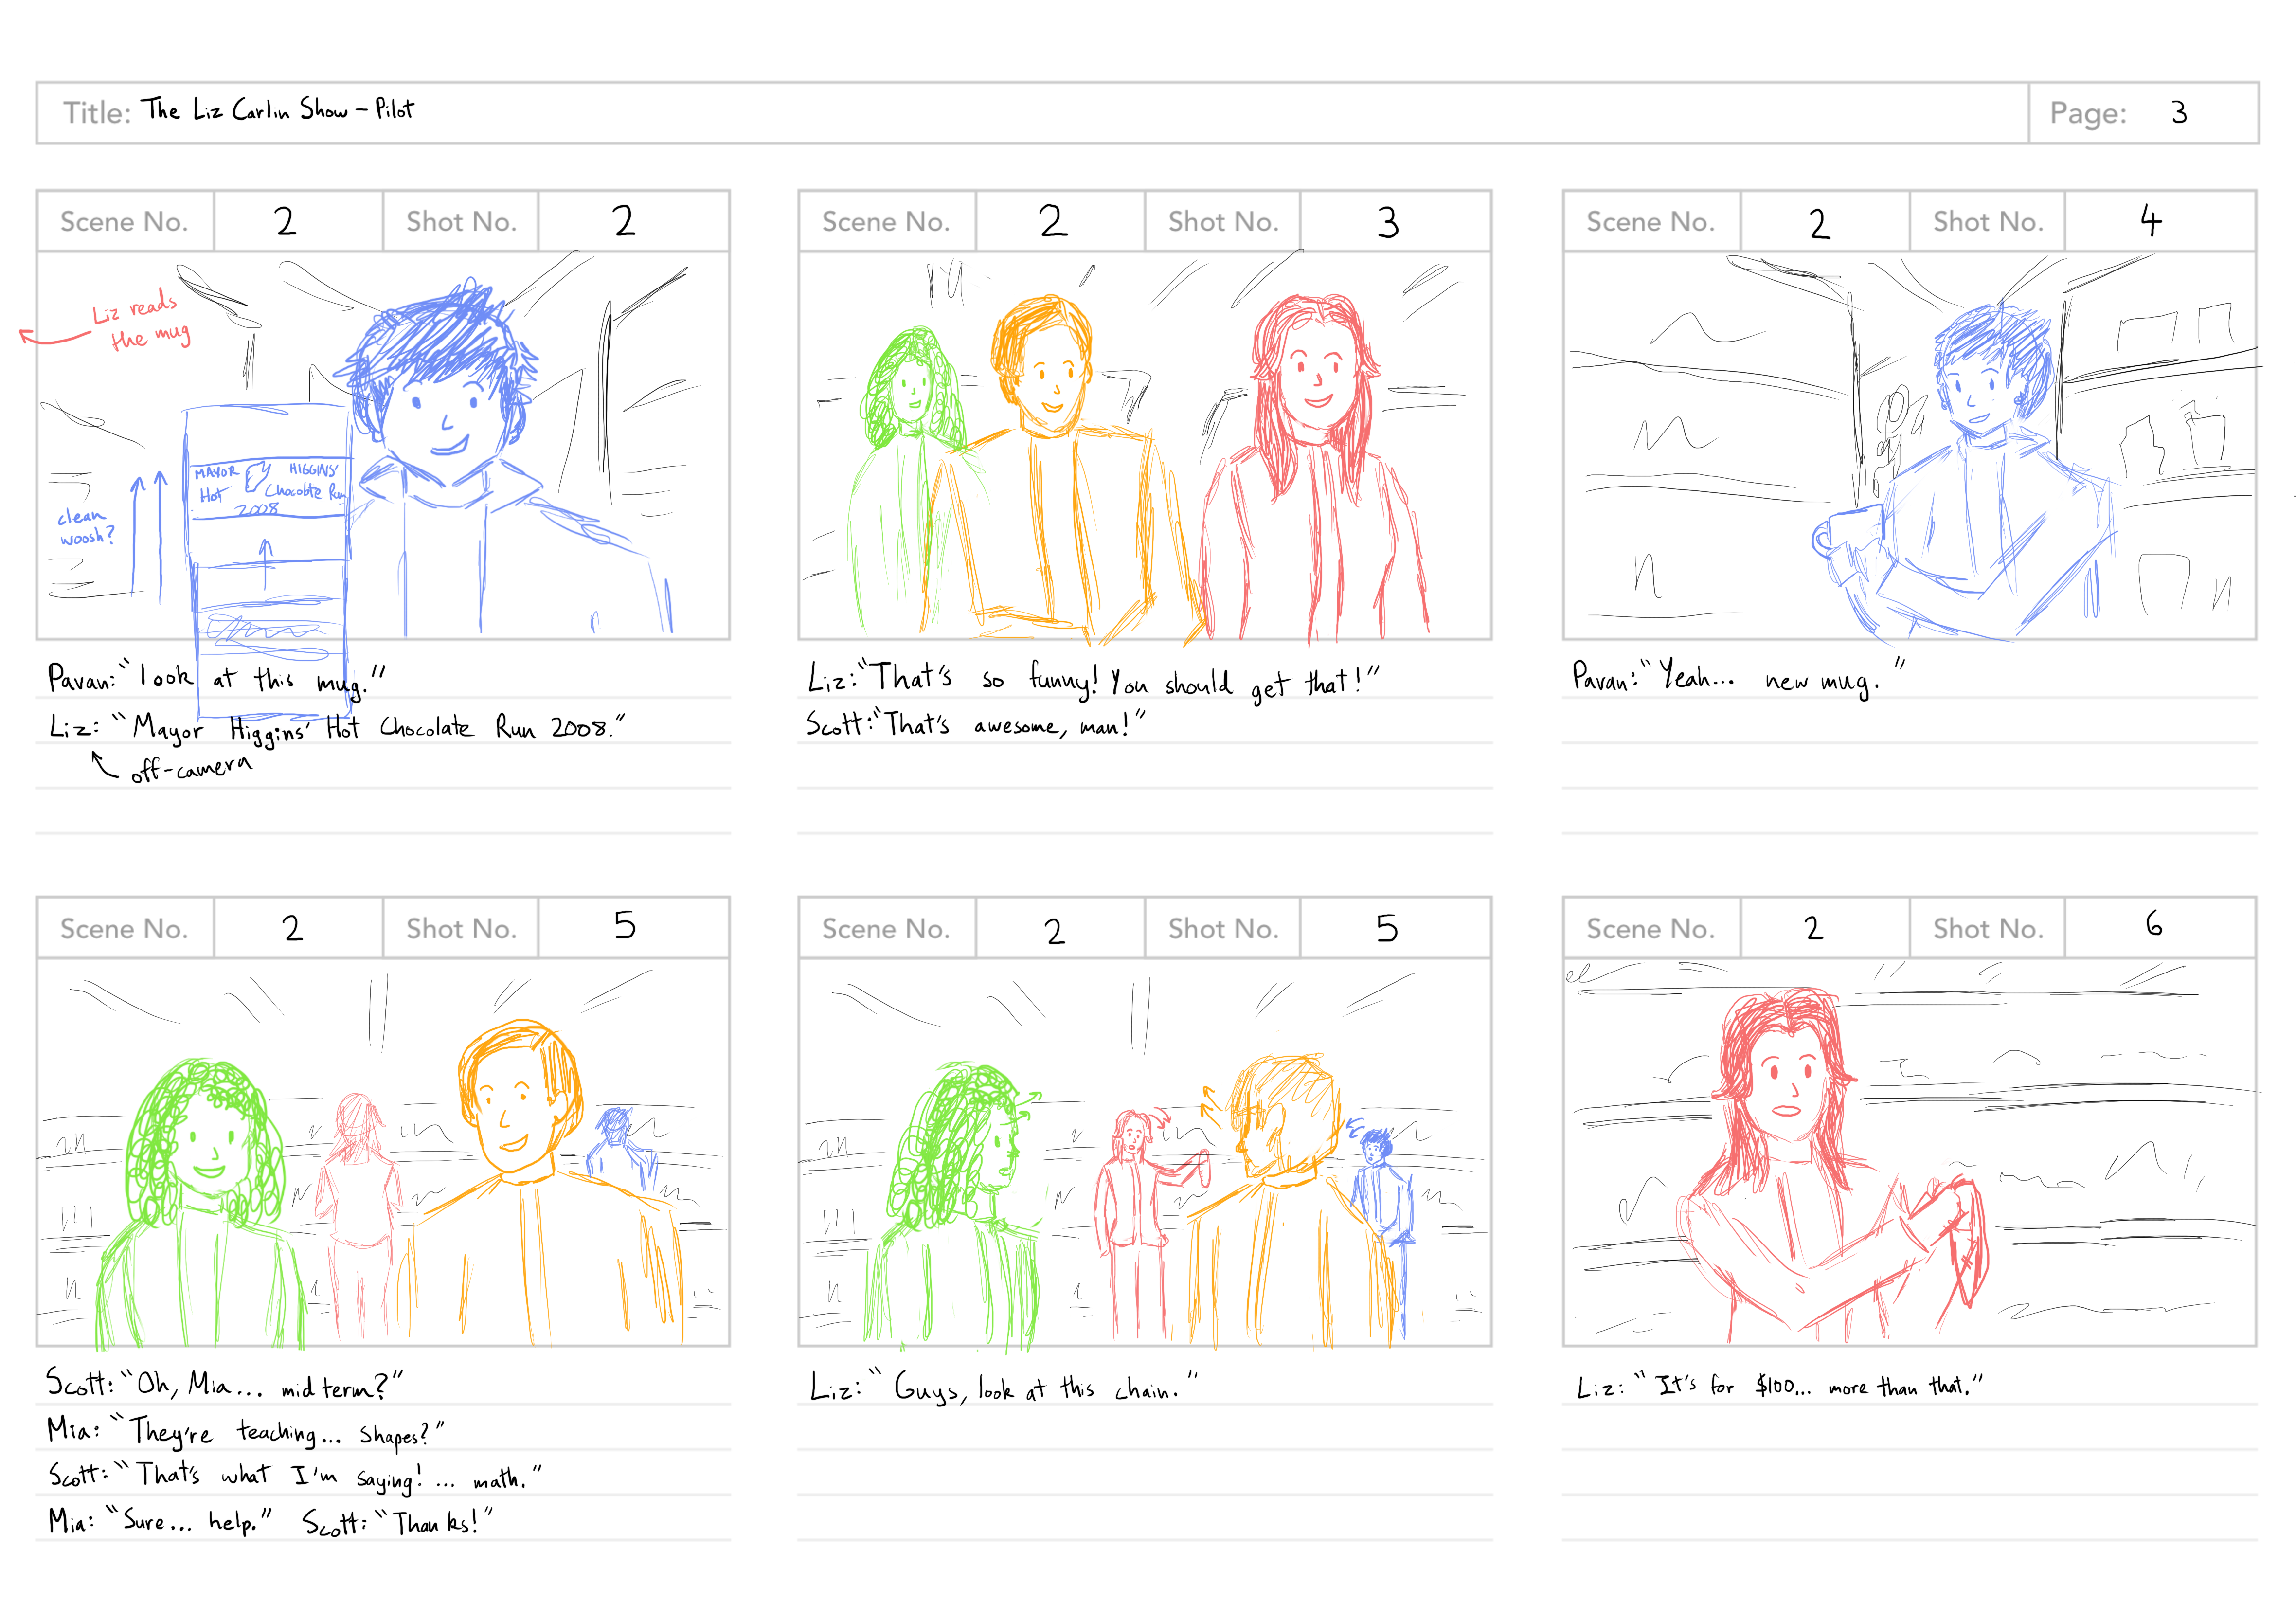 Title: The Liz Carlin Show – Pilot
Page: 3
Scene No. 2 Shot No. 2
Liz reads
the mug
MAYOR HIGGINS'
Hot Chocolate Run
2008
clean
woosh?
Pavan: "look at this mug."
Liz: "Mayor Higgins' Hot Chocolate Run 2008."
off-camera
Scene No. 2 Shot No. 3
Liz: "That's so funny! You should get that!"
Scott: "That's awesome, man!"
Scene No. 2 Shot No. 4
Pavan: "Yeah... new mug."
Scene No. 2 Shot No. 5
Scott: "Oh, Mia... midterm?"
Mia: "They're teaching... shapes?"
Scott: "That's what I'm saying! ... math."
Mia: "Sure... help." Scott: "Thanks!"
Scene No. 2 Shot No. 5
Liz: "Guys, look at this chain."
Scene No. 2 Shot No. 6
Liz: "It's for $100... more than that."